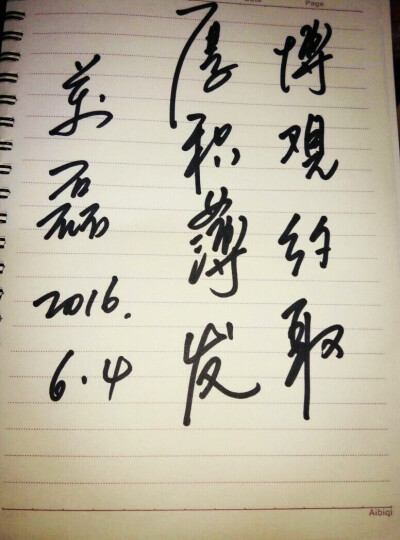 Page
博观约取
厚积薄发
萧磊
2016.
6.4
Aibiqi